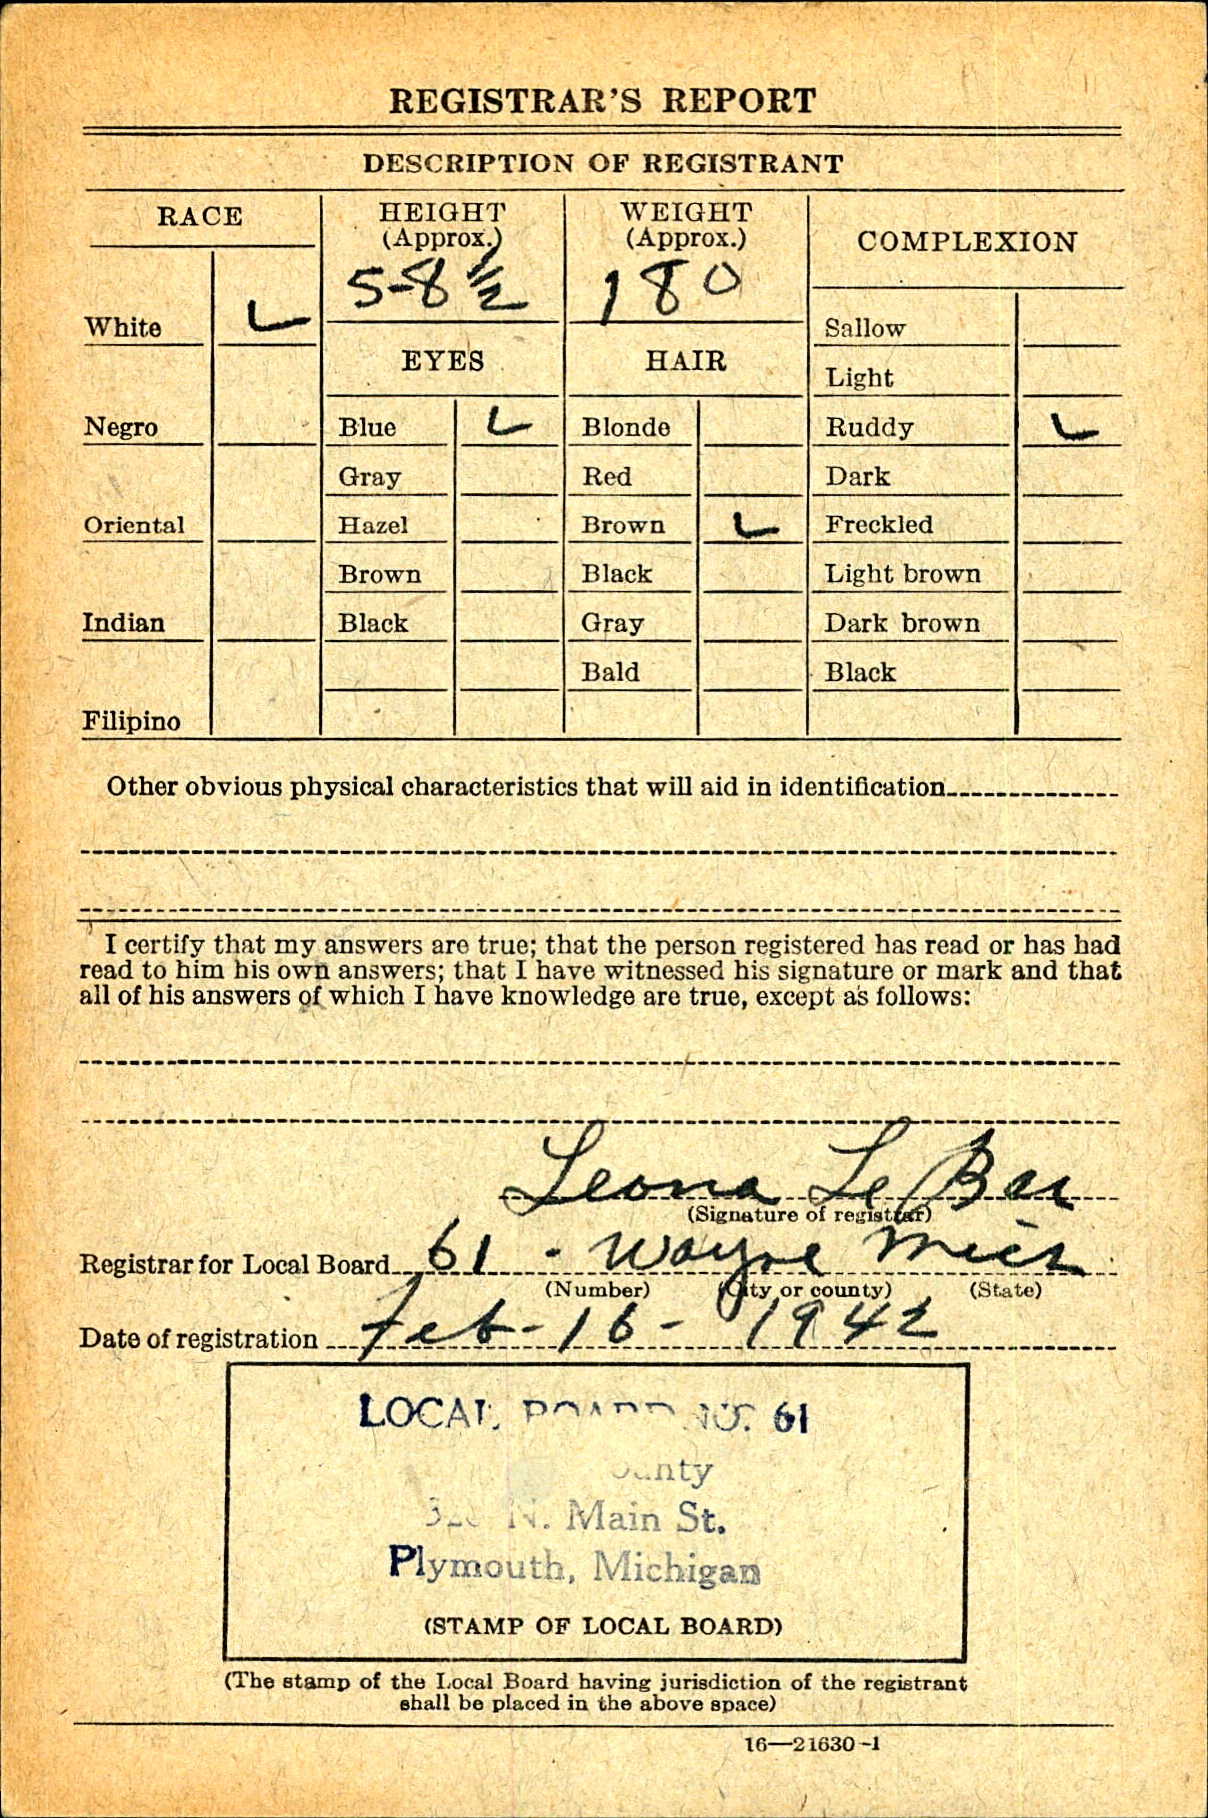 REGISTRAR'S REPORT
DESCRIPTION OF REGISTRANT
RACE
HEIGHT
(Approx.)
5-8 ½
WEIGHT
(Approx.)
180
COMPLEXION
White
EYES
HAIR
Sallow
Light
Negro
Blue
Blonde
Ruddy
Gray
Red
Dark
Oriental
Hazel
Brown
Freckled
Brown
Black
Light brown
Indian
Black
Gray
Dark brown
Bald
Black
Filipino
Other obvious physical characteristics that will aid in identification
I certify that my answers are true; that the person registered has read or has had
read to him his own answers; that I have witnessed his signature or mark and that
all of his answers of which I have knowledge are true, except as follows:
Leona Le Bar
(Signature of registrar)
Registrar for Local Board 61 - Wayne Mich
(Number) (City or county) (State)
Date of registration Feb-16-1942
LOCAL BOARD NO. 61
County
N. Main St.
Plymouth, Michigan
(STAMP OF LOCAL BOARD)
(The stamp of the Local Board having jurisdiction of the registrant
shall be placed in the above space)
16—21630-1